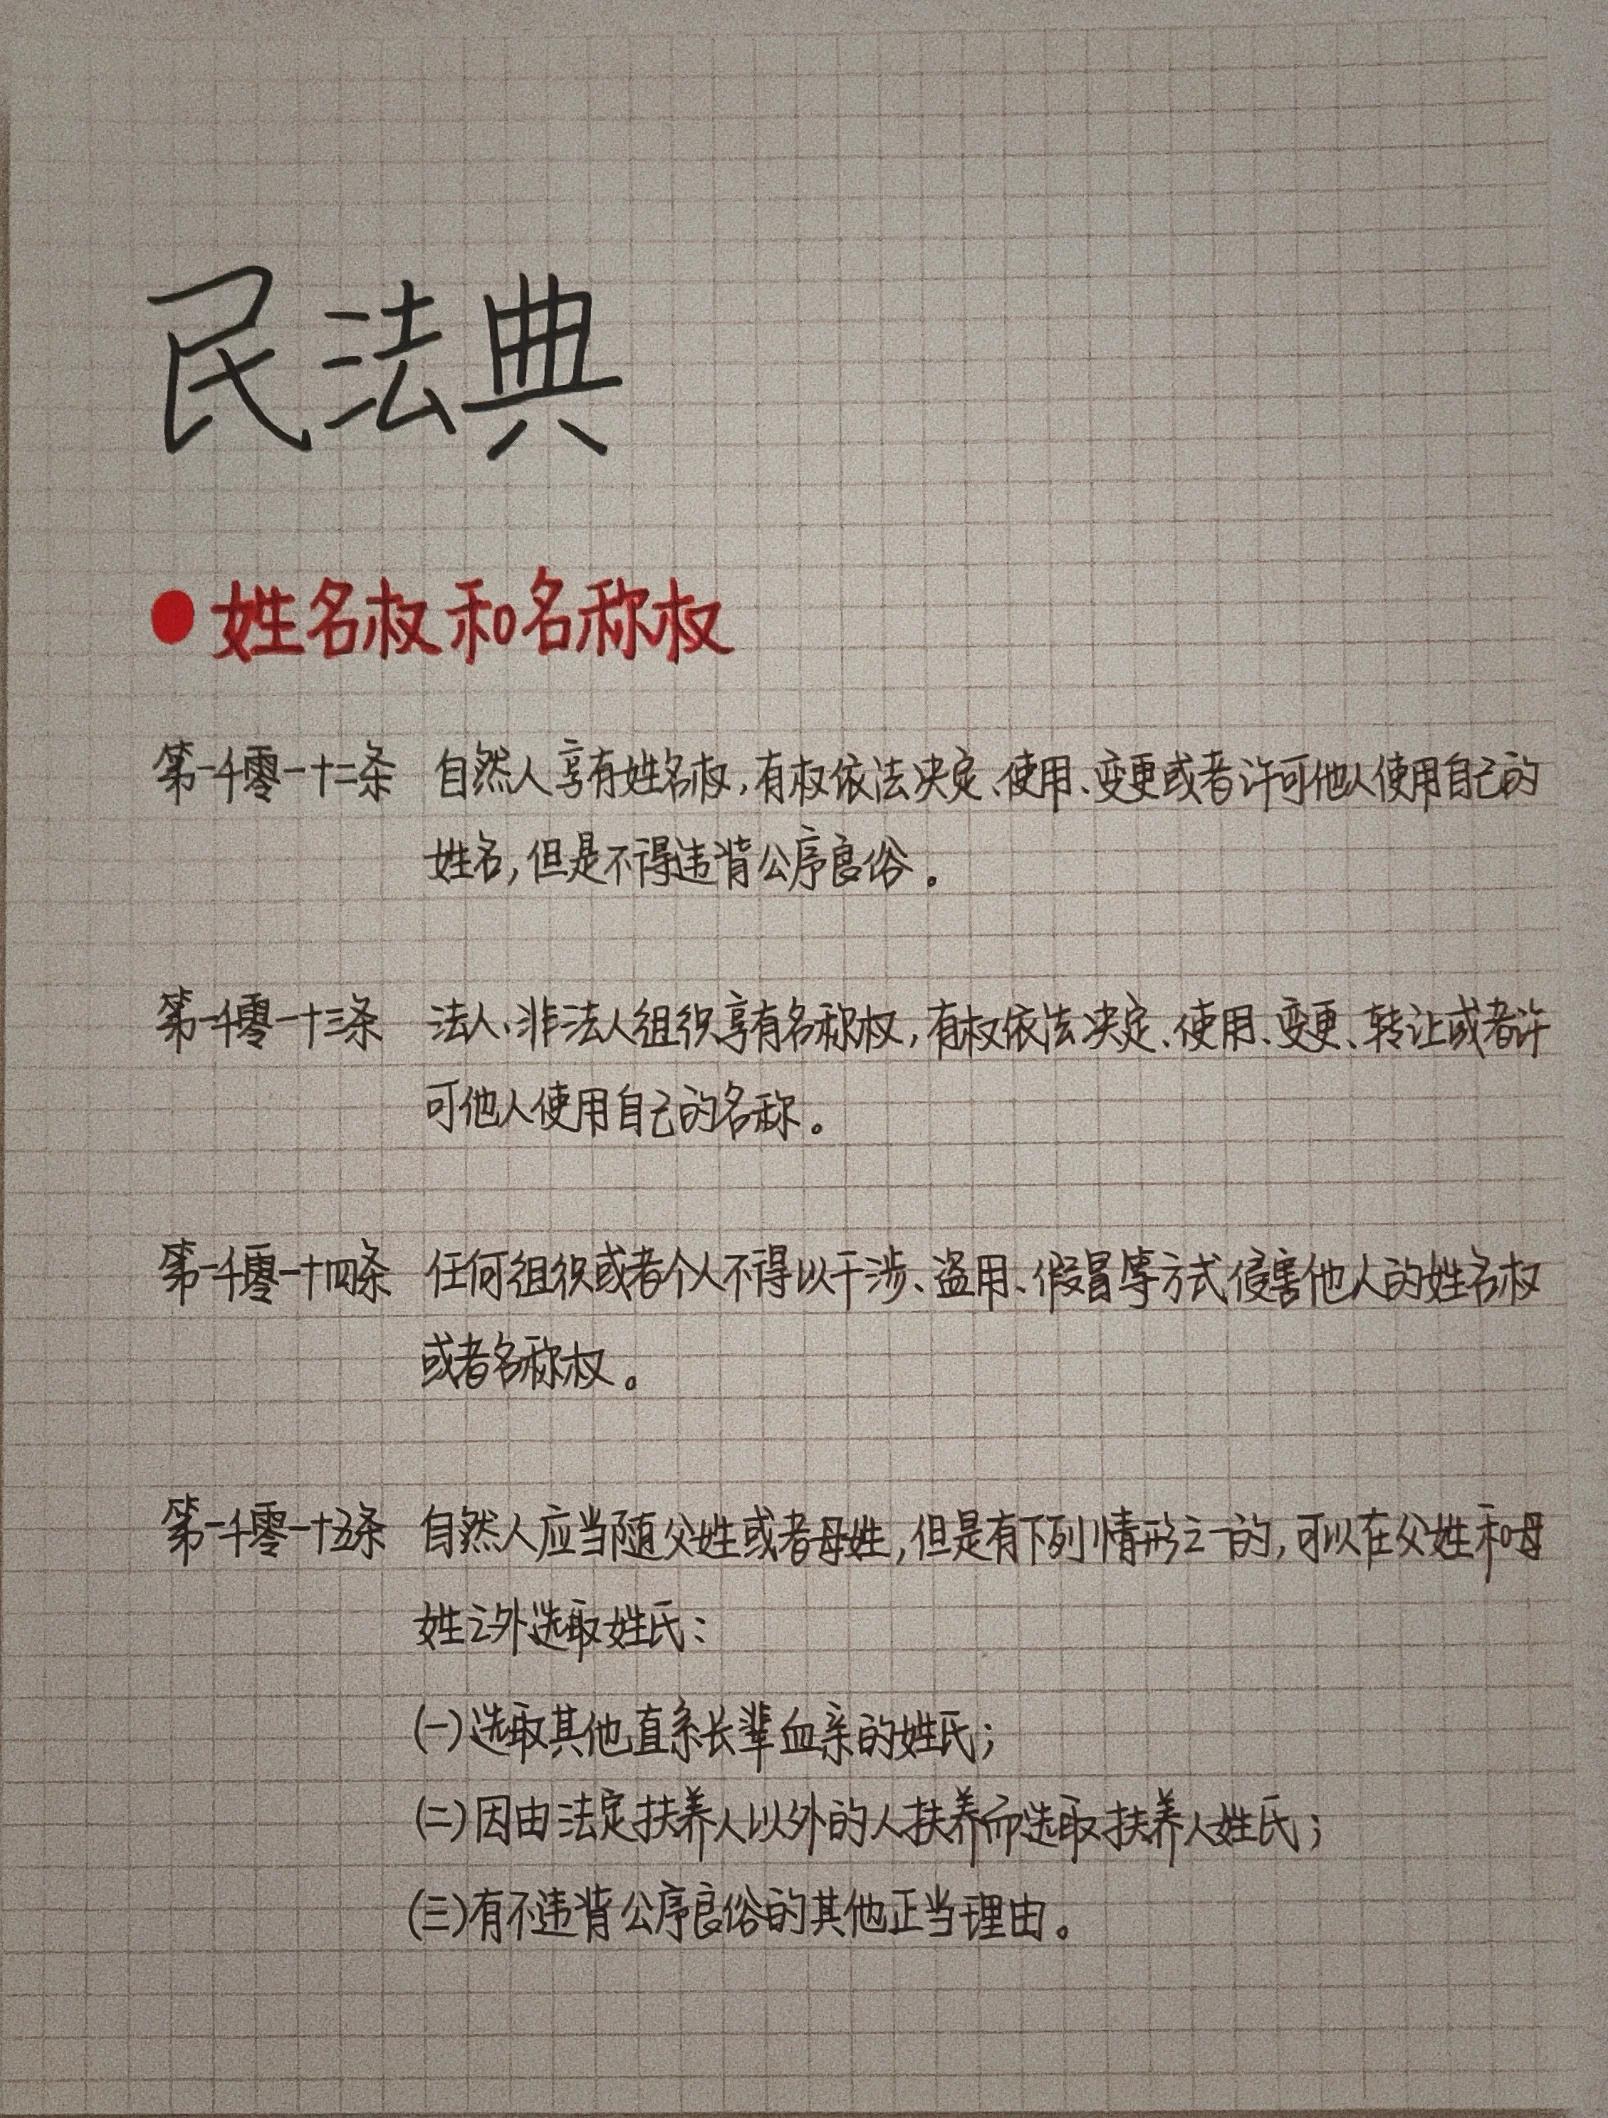 民法典
●姓名权和名称权
第一千零一十二条 自然人享有姓名权,有权依法决定、使用、变更或者许可他人使用自己的
姓名,但是不得违背公序良俗。
第一千零一十三条 法人、非法人组织享有名称权,有权依法决定、使用、变更、转让或者许
可他人使用自己的名称。
第一千零一十四条 任何组织或者个人不得以干涉、盗用、假冒等方式侵害他人的姓名权
或者名称权。
第一千零一十五条 自然人应当随父姓或者母姓,但是有下列情形之一的,可以在父姓和母
姓之外选取姓氏:
(一)选取其他直系长辈血亲的姓氏;
(二)因由法定扶养人以外的人扶养而选取扶养人姓氏;
(三)有不违背公序良俗的其他正当理由。